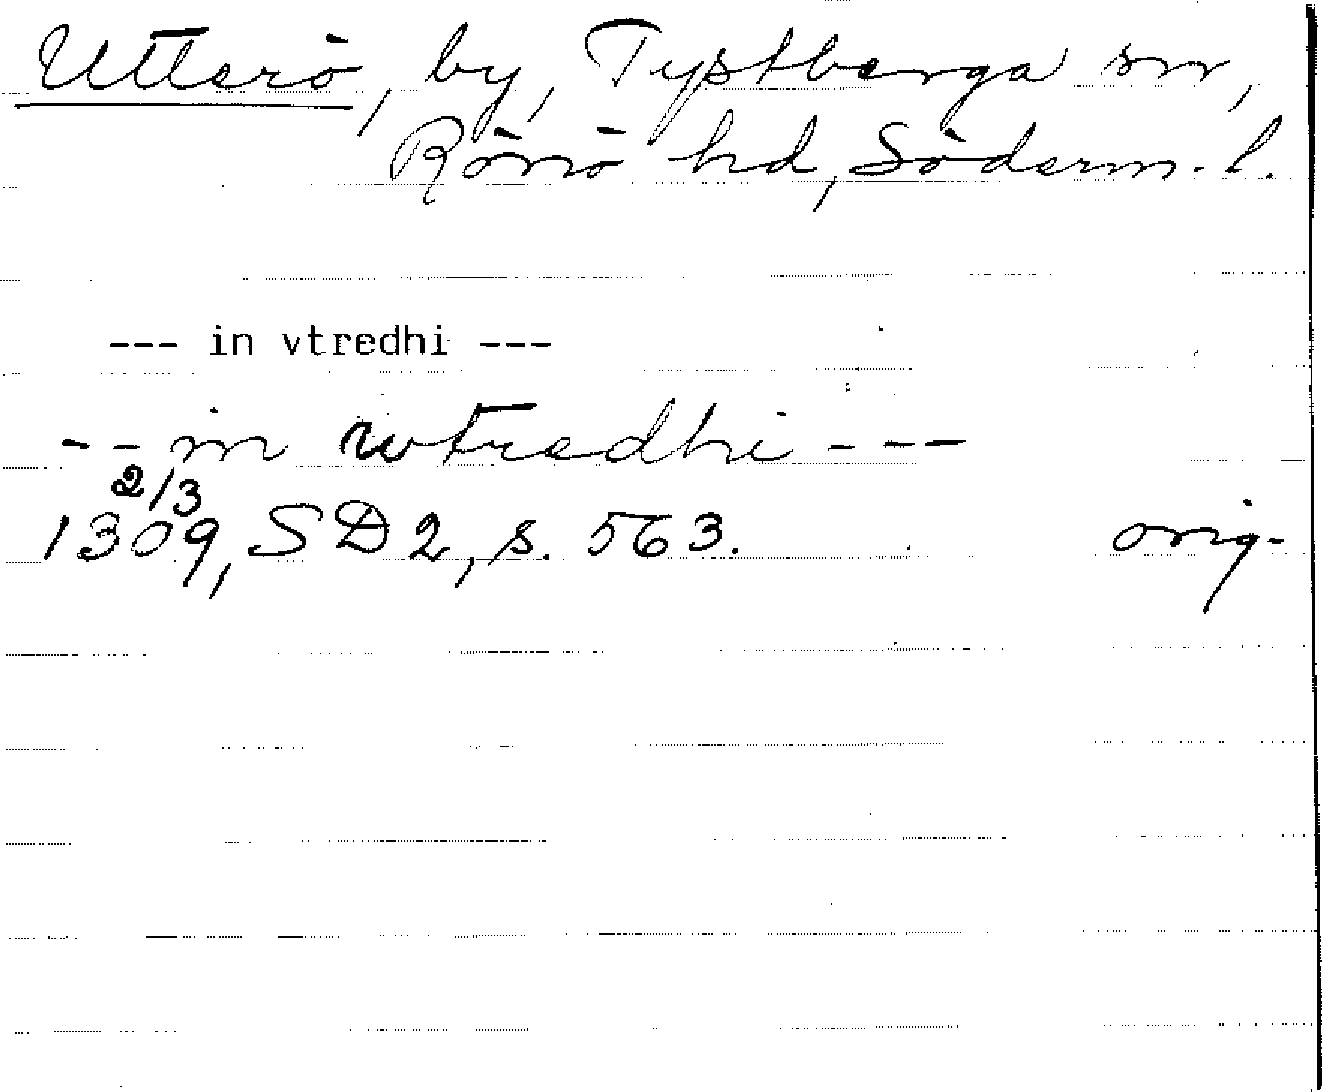 Utterö, by, Tystberga sn,
Rönö hd, Söderm. l.
--- in vtredhi ---
-- in vtredhi ---
2/3
1309, SD 2, s. 563. orig.